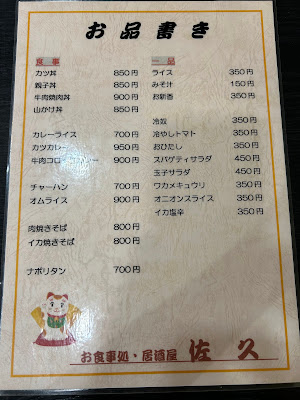 お品書き
食事
カツ丼 850円
親子丼 850円
牛肉焼肉丼 900円
山かけ丼 850円
カレーライス 700円
カツカレー 950円
牛肉コロ 900円
チャーハン 700円
オムライス 900円
肉焼きそば 800円
イカ焼きそば 800円
ナポリタン 700円
一品
ライス 350円
みそ汁 150円
お新香 350円
冷奴 350円
冷やしトマト 350円
おひたし 350円
スパゲティサラダ 450円
玉子サラダ 450円
ワカメキュウリ 350円
オニオンスライス 350円
イカ塩辛 350円
お食事処・居酒屋 佐久